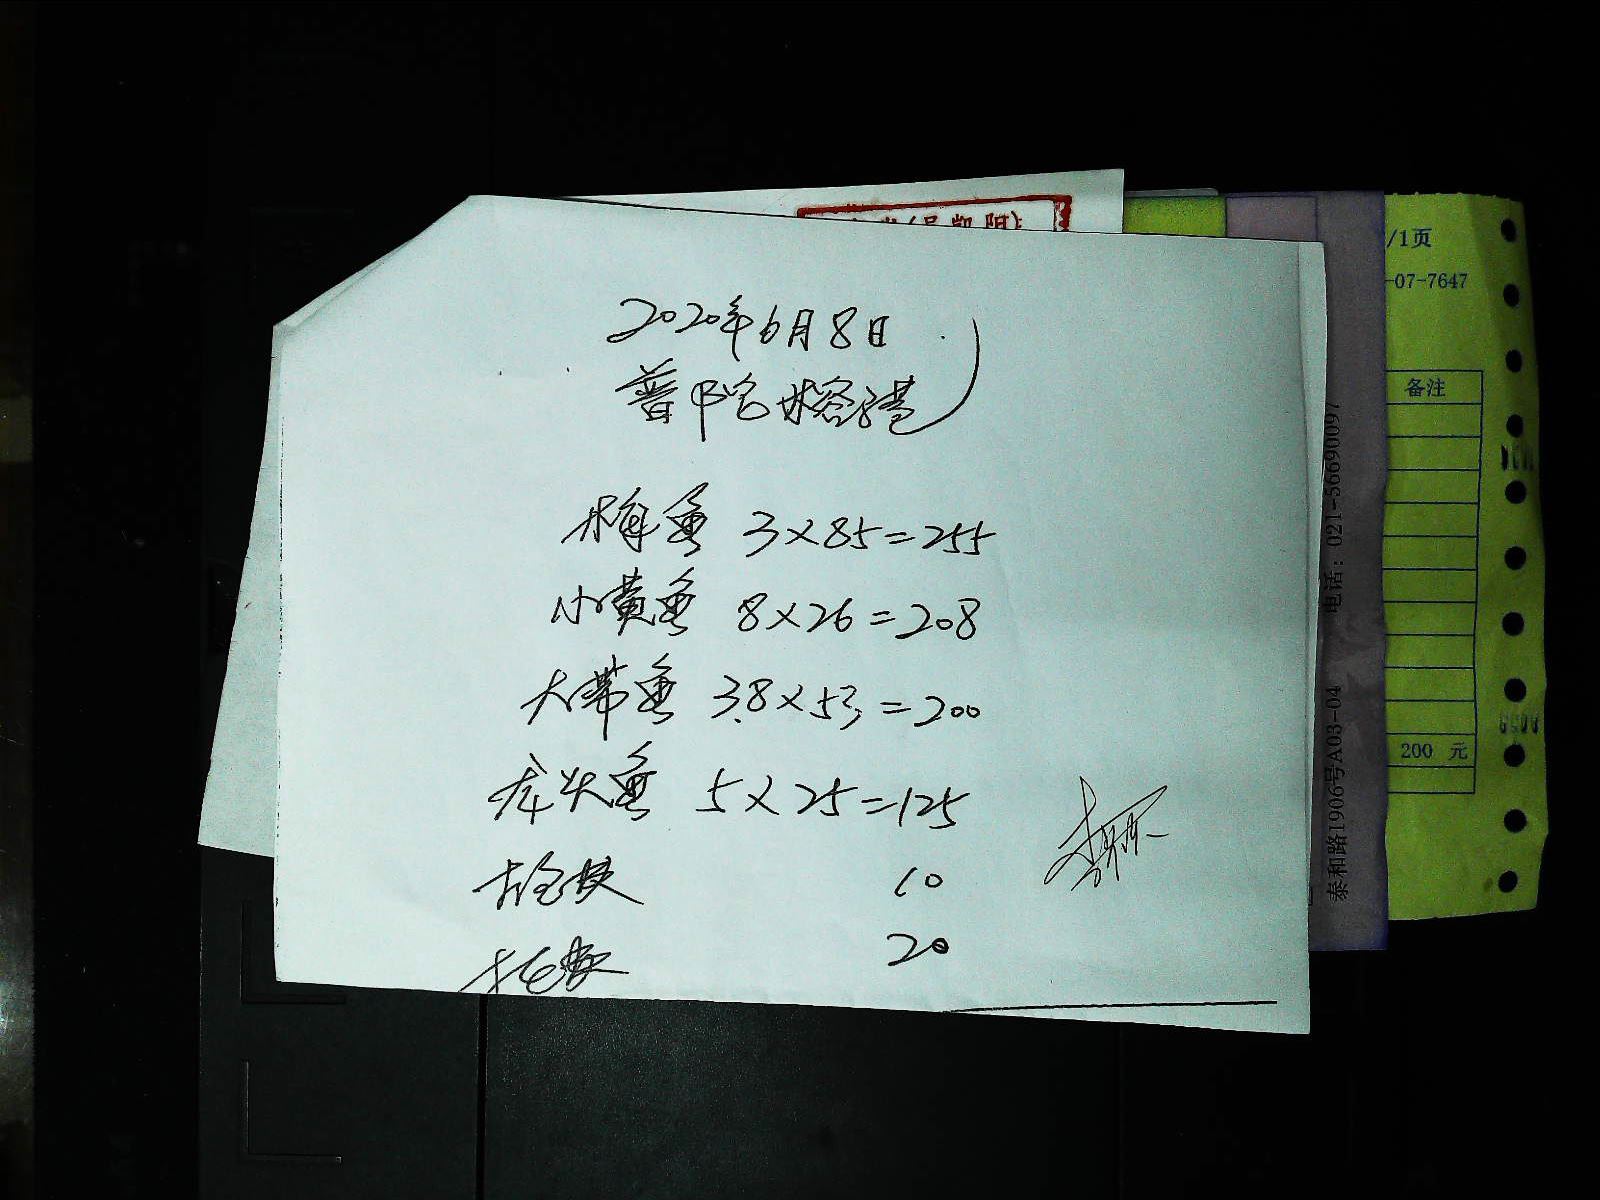 2020年6月8日
普陀榕港
梅鱼 3×85=255
小黄鱼 8×26=208
大带鱼 3.8×53=200
龙头鱼 5×25=125
10
20
/1页
-07-7647
备注
200 元
电话: 021-56690097
泰和路1906号A03-04